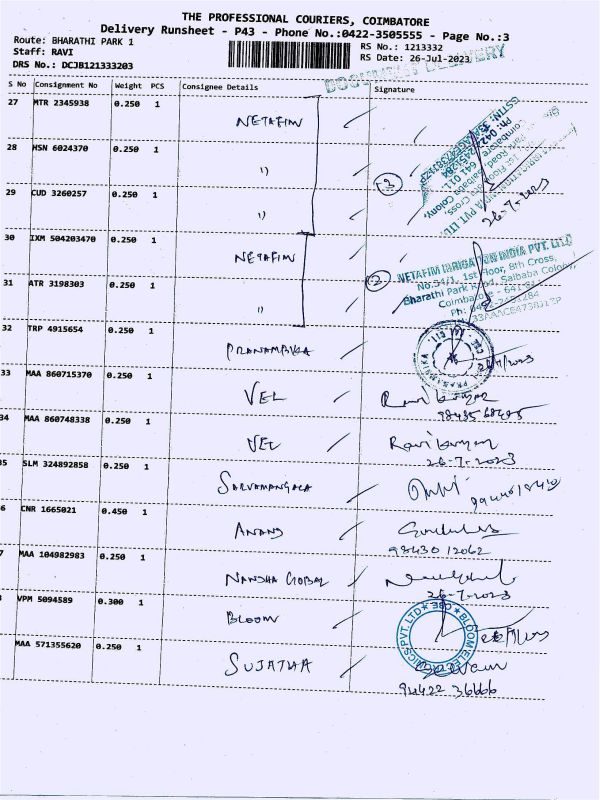 THE PROFESSIONAL COURIERS, COIMBATORE
Delivery Runsheet - P43 - Phone No.:0422-3505555 - Page No.:3
Route: BHARATHI PARK 1
RS No.: 1213332
Staff: RAVI
RS Date: 26-Jul-2023
DRS No.: DCJB121333203
DOCUMENT DELIVERY
S No Consignment No Weight PCS Consignee Details Signature
27 MTR 2345938 0.250 1 NETAFIM
28 MSN 6024370 0.250 1 "
3
29 CUD 3260257 0.250 1 "
26-7-2023
30 IXM 504203470 0.250 1 NETAFIM
2
NETAFIM IRRIGATION INDIA PVT. LTD
No.54/1, 1st Floor, 8th Cross,
Bharathi Park Road, Saibaba Colony,
31 ATR 3198303 0.250 1 "
32 TRP 4915654 0.250 1 PRANAMBIKA
33 MAA 860715370 0.250 1 VEL
34 MAA 860748338 0.250 1 VEL Ravikumar
26-7-2023
35 SLM 324892858 0.250 1 SARVAMANGALA
6 CNR 1665021 0.450 1 ANAND
98430 12062
7 MAA 104982983 0.250 1 NANDHA GOBAL
26-7-2023
VPM 5094589 0.300 1 BLOOM
MAA 571355620 0.250 1 SUJATHA
94422 36666